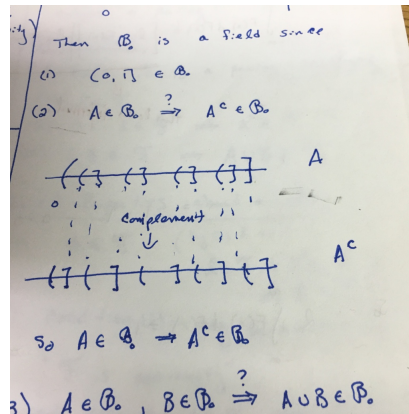 0 1
ity)
Then 𝔅₀ is a field since
(1) (0, 1] ∈ 𝔅₀
(2) A ∈ 𝔅₀ ?⇒ Aᶜ ∈ 𝔅₀
( ( ] ( ] ( ] ( ] ] A
0
complement
↓
( ] ( ] ( ] ( ] ( ] Aᶜ
So A ∈ 𝔅₀ ⇒ Aᶜ ∈ 𝔅₀
3) A ∈ 𝔅₀, B ∈ 𝔅₀ ?⇒ A ∪ B ∈ 𝔅₀